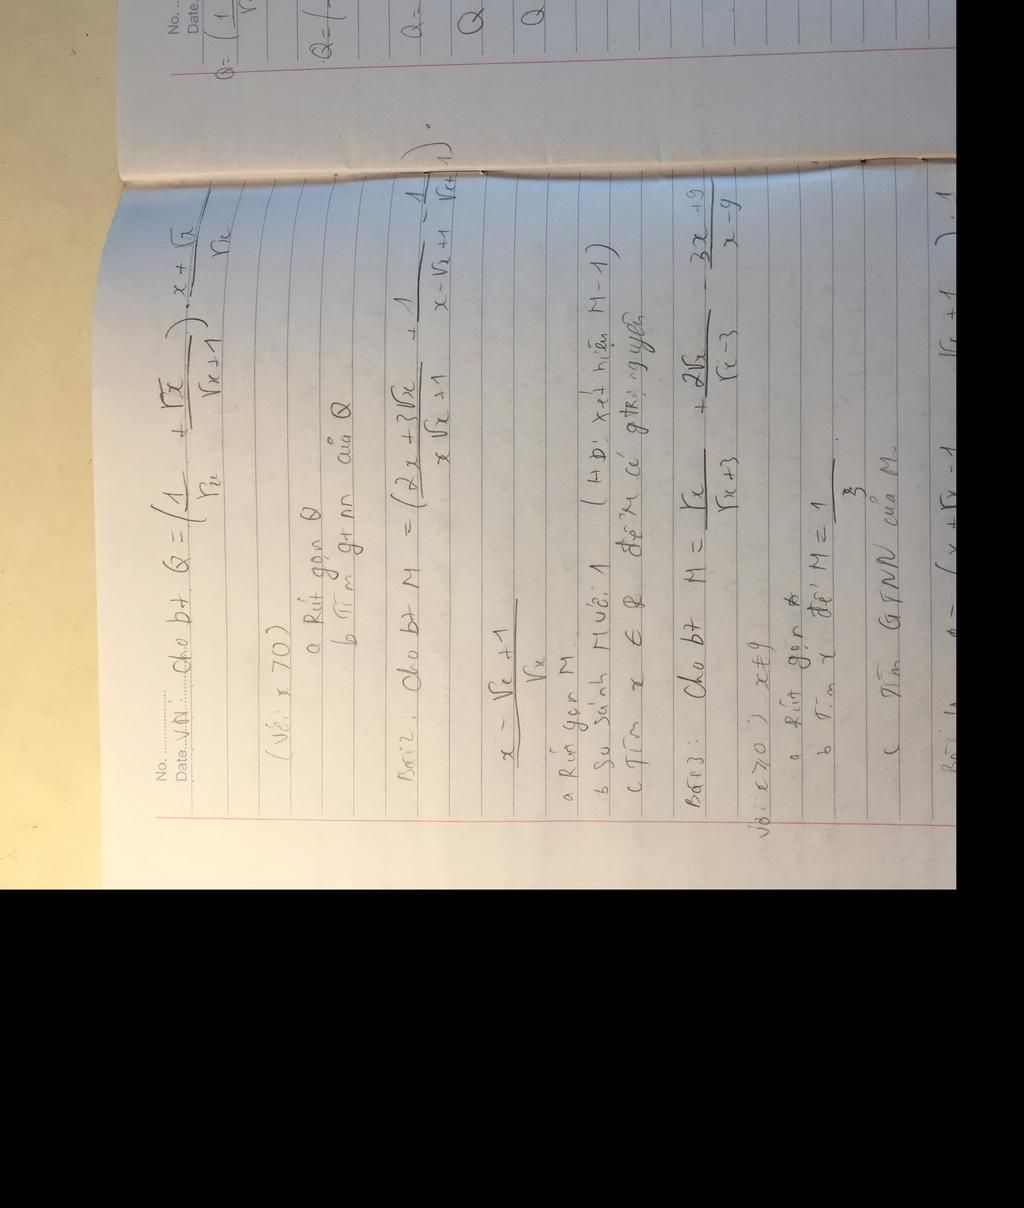 No. ..............
Date..VN:....Cho bt Q = (1/√x + √x/√x+1) . x+√x/√x
(Với x > 0)
a Rút gọn Q
b Tìm gtnn của Q
Bài 2: Cho bt M = (2x+3√x/x√x+1 + 1/x-√x+1 - 1/√x+1) .
x-√x+1/√x
a Rút gọn M
b So sánh M với 1 (HD: xét hiệu M-1)
c Tìm x ∈ R để M có gtrị nguyên
Bài 3: Cho bt M = √x/√x+3 + 2√x/√x-3 - 3x+9/x-9
với x ≥ 0; x ≠ 9
a Rút gọn
b Tìm x để M = 1/3
c Tìm GTNN của M.
√x+1 ) . 1
No. ..
Date.
Q= (1
Q=(
Q=
Q
Q